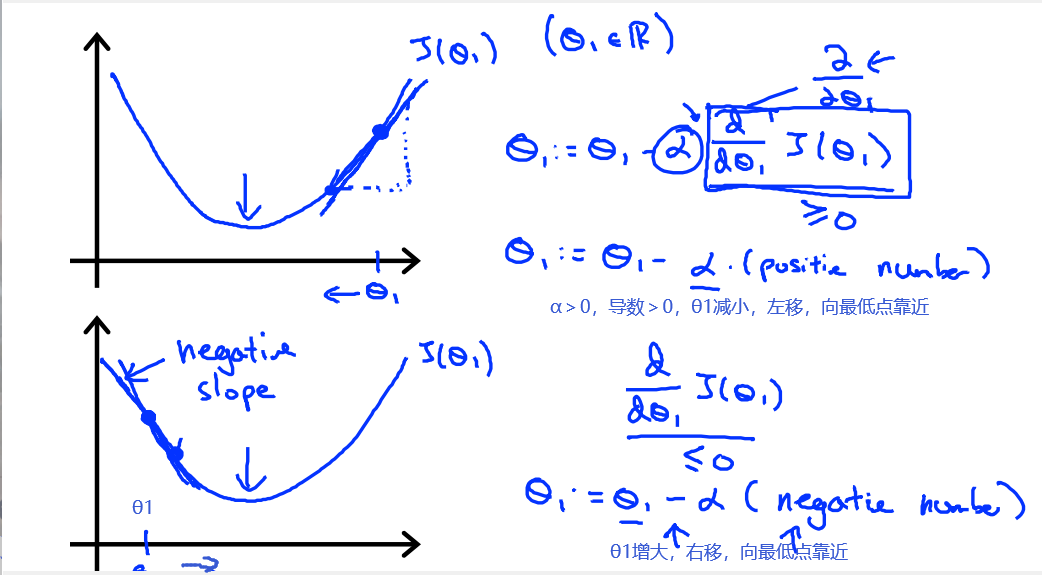 J(θ₁) (θ₁ ∈ ℝ)
∂/∂θ₁
θ₁ := θ₁ - α d/dθ₁ J(θ₁)
≥ 0
θ₁ := θ₁ - α · (positive number)
← θ₁
α＞0，导数＞0，θ1减小，左移，向最低点靠近
negative
slope
J(θ₁)
d/dθ₁ J(θ₁)
≤ 0
θ₁ := θ₁ - α (negative number)
θ1
θ1增大，右移，向最低点靠近